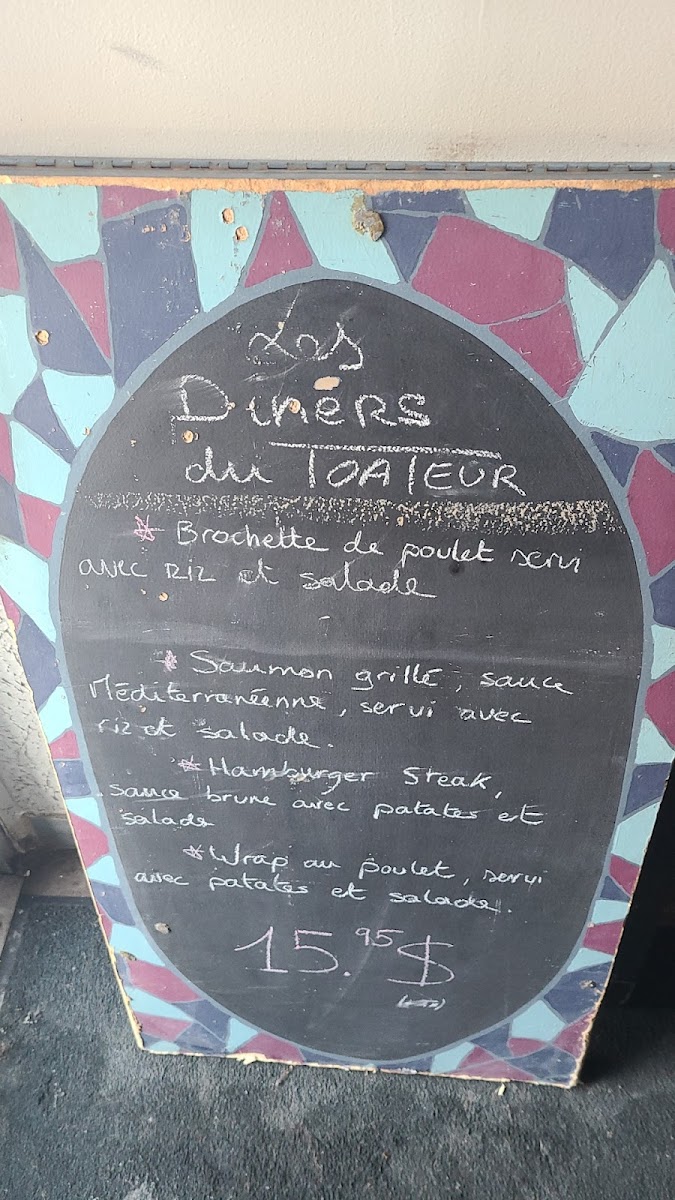 Les
Diners
du TOATEUR
* Brochette de poulet servi
avec riz et salade
* Saumon grillé, sauce
Méditerranéenne, servi avec
riz et salade.
* Hamburger Steak,
sauce brune avec patates et
salade
* Wrap au poulet, servi
avec patates et salade.
15.95$